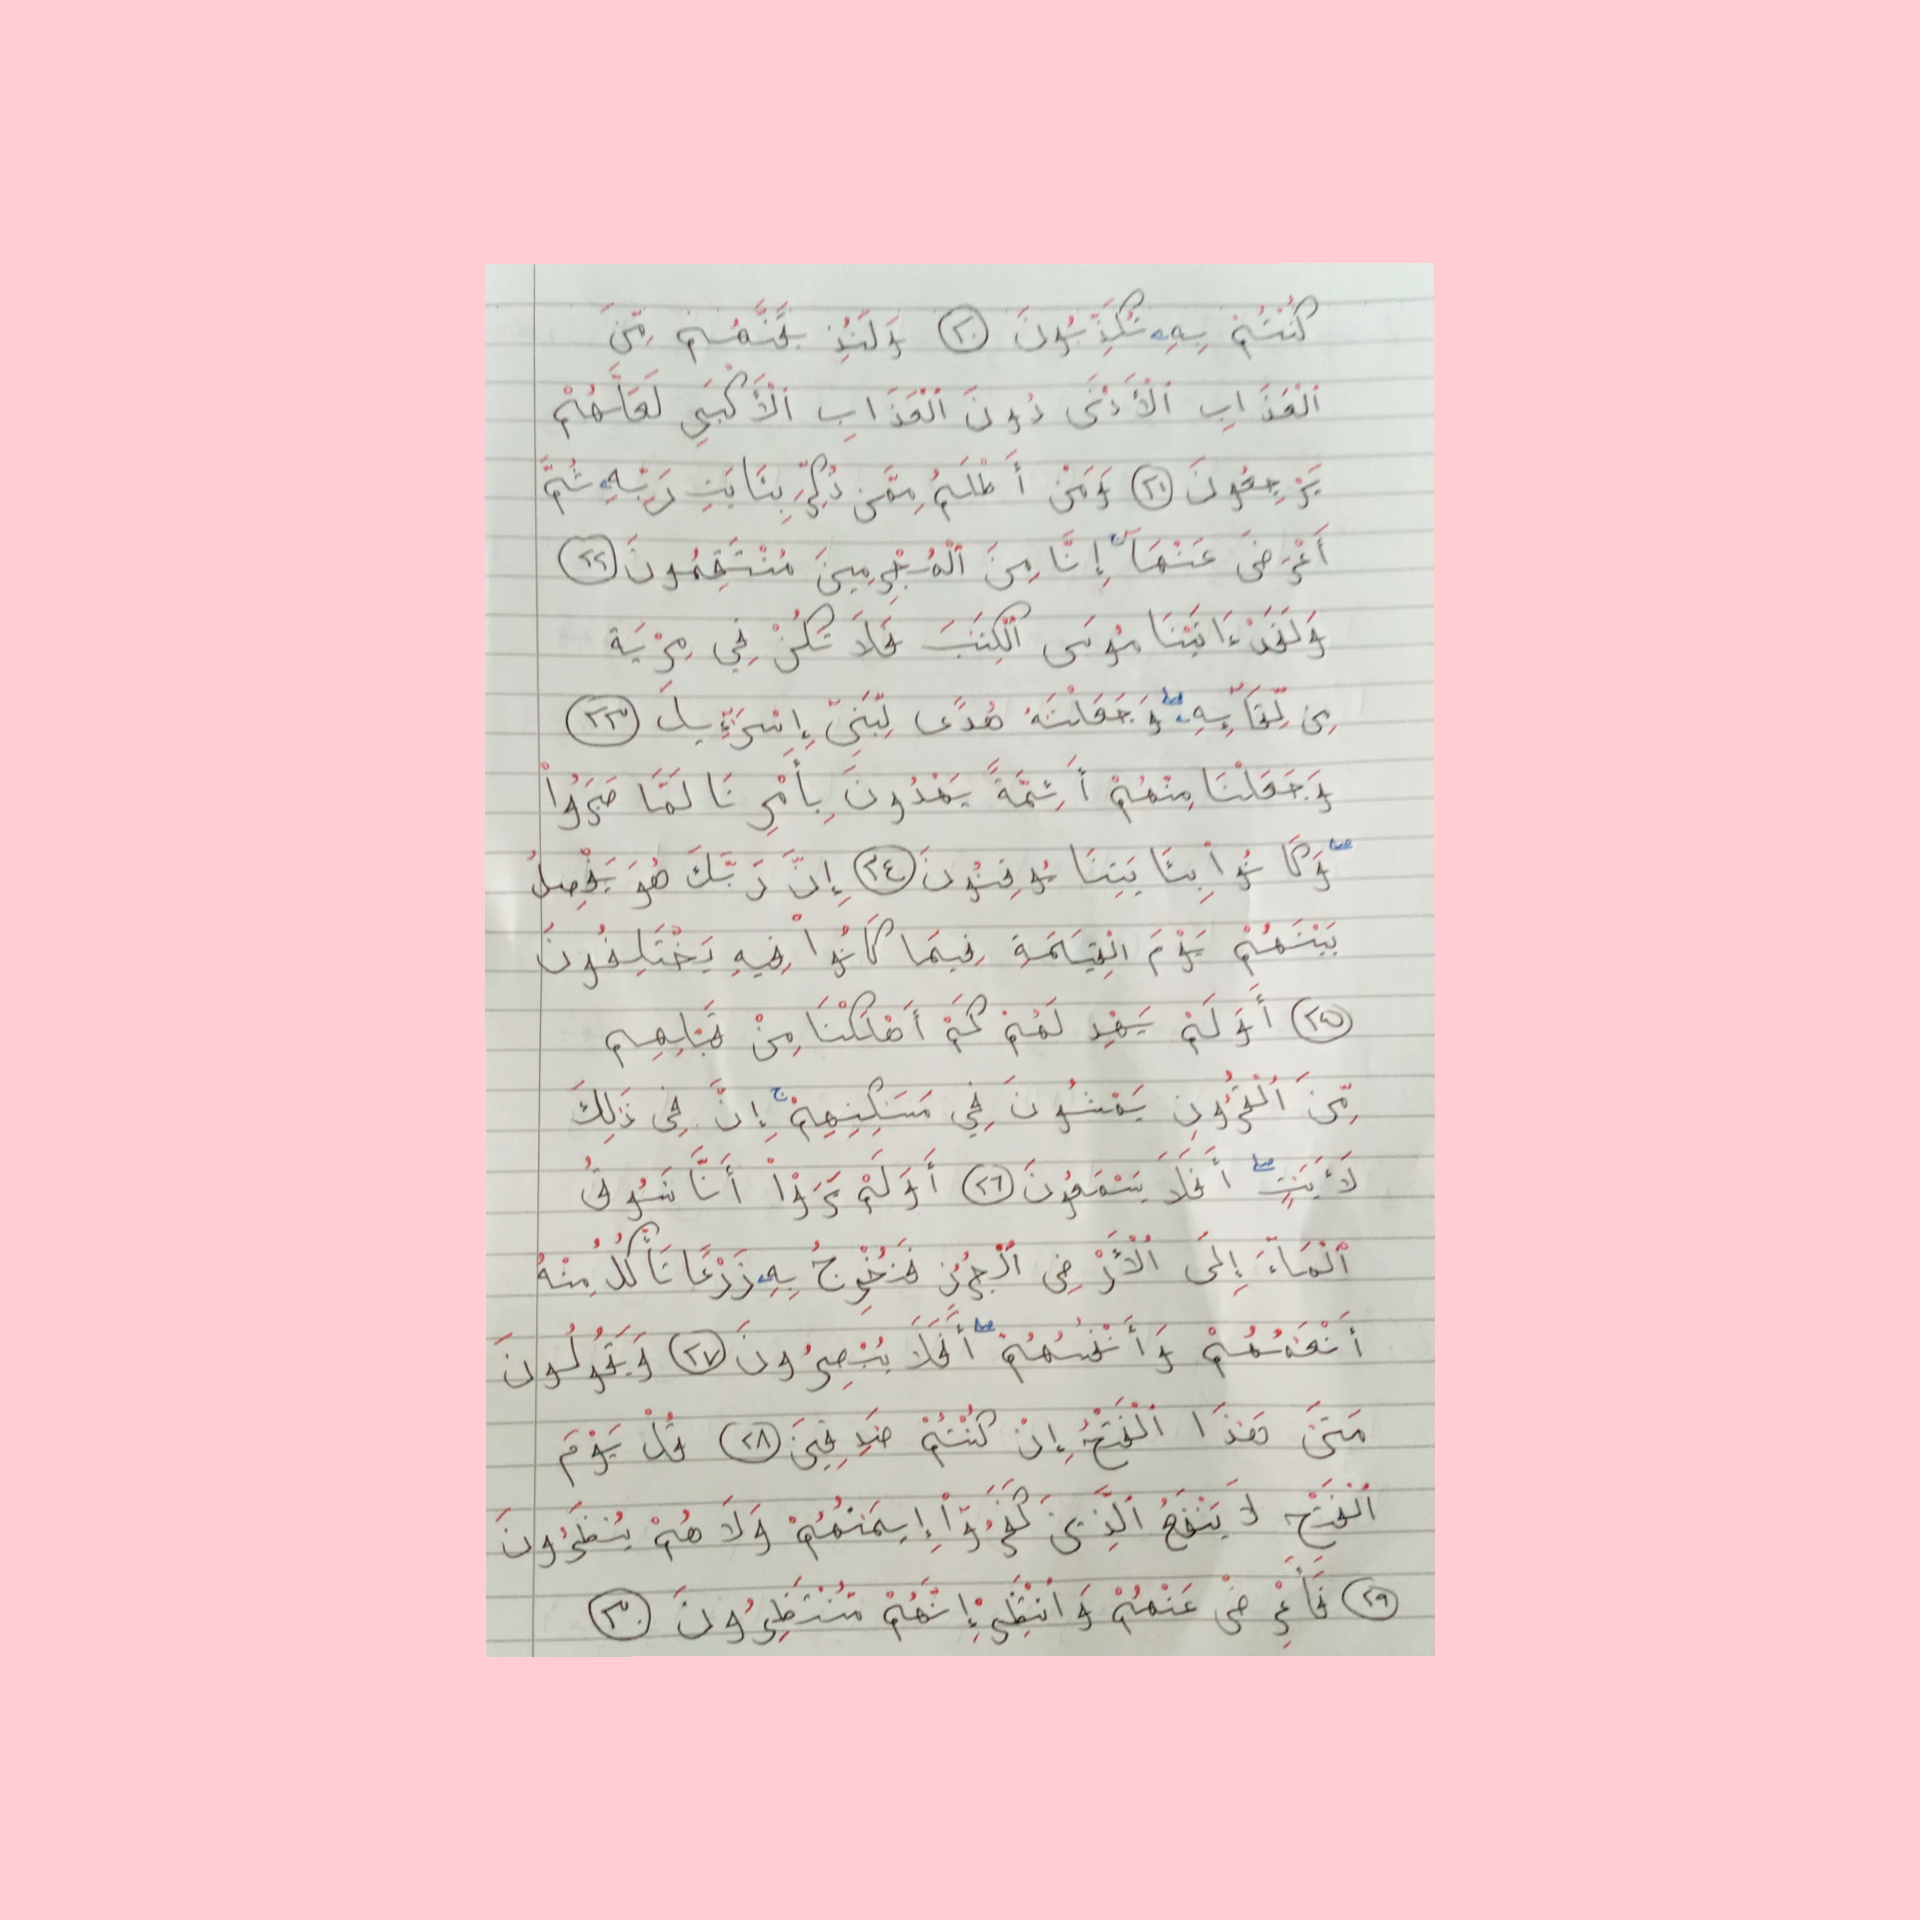 كُنْتُمْ بِهِۦ تُكَذِّبُونَ ٢٠ وَلَنُذِيقَنَّهُمْ مِّنَ
ٱلْعَذَابِ ٱلْأَدْنَىٰ دُونَ ٱلْعَذَابِ ٱلْأَكْبَرِ لَعَلَّهُمْ
يَرْجِعُونَ ٢١ وَمَنْ أَظْلَمُ مِمَّن ذُكِّرَ بِـَٔايَٰتِ رَبِّهِۦ ثُمَّ
أَعْرَضَ عَنْهَآ ۚ إِنَّا مِنَ ٱلْمُجْرِمِينَ مُنْتَقِمُونَ ٢٢
وَلَقَدْ ءَاتَيْنَا مُوسَى ٱلْكِتَٰبَ فَلَا تَكُنْ فِي مِرْيَةٍ
مِن لِّقَآئِهِۦ ۖ وَجَعَلْنَٰهُ هُدًى لِّبَنِيٓ إِسْرَٰٓءِيلَ ٢٣
وَجَعَلْنَا مِنْهُمْ أَئِمَّةً يَهْدُونَ بِأَمْرِنَا لَمَّا صَبَرُوا۟
ۖ وَكَانُوا۟ بِـَٔايَٰتِنَا يُوقِنُونَ ٢٤ إِنَّ رَبَّكَ هُوَ يَفْصِلُ
بَيْنَهُمْ يَوْمَ الْقِيَٰمَةِ فِيمَا كَانُوا۟ فِيهِ يَخْتَلِفُونَ
٢٥ أَوَلَمْ يَهْدِ لَهُمْ كَمْ أَهْلَكْنَا مِنْ قَبْلِهِم
مِّنَ ٱلْقُرُونِ يَمْشُونَ فِي مَسَٰكِنِهِمْ ۚ إِنَّ فِى ذَٰلِكَ
لَأَيَٰتٍ ۖ أَفَلَا يَسْمَعُونَ ٢٦ أَوَلَمْ يَرَوْا۟ أَنَّا نَسُوقُ
ٱلْمَآءَ إِلَى ٱلْأَرْضِ ٱلْجُرُزِ فَنُخْرِجُ بِهِۦ زَرْعًا تَأْكُلُ مِنْهُ
أَنْعَٰمُهُمْ وَأَنْفُسُهُمْ ۖ أَفَلَا يُبْصِرُونَ ٢٧ وَيَقُولُونَ
مَتَىٰ هَٰذَا ٱلْفَتْحُ إِنْ كُنْتُمْ صَٰدِقِينَ ٢٨ قُلْ يَوْمَ
ٱلْفَتْحِ لَا يَنْفَعُ ٱلَّذِينَ كَفَرُوٓا۟ إِيمَٰنُهُمْ وَلَا هُمْ يُنْظَرُونَ
٢٩ فَأَعْرِضْ عَنْهُمْ وَٱنْتَظِرْ إِنَّهُمْ مُّنْتَظِرُونَ ٣٠